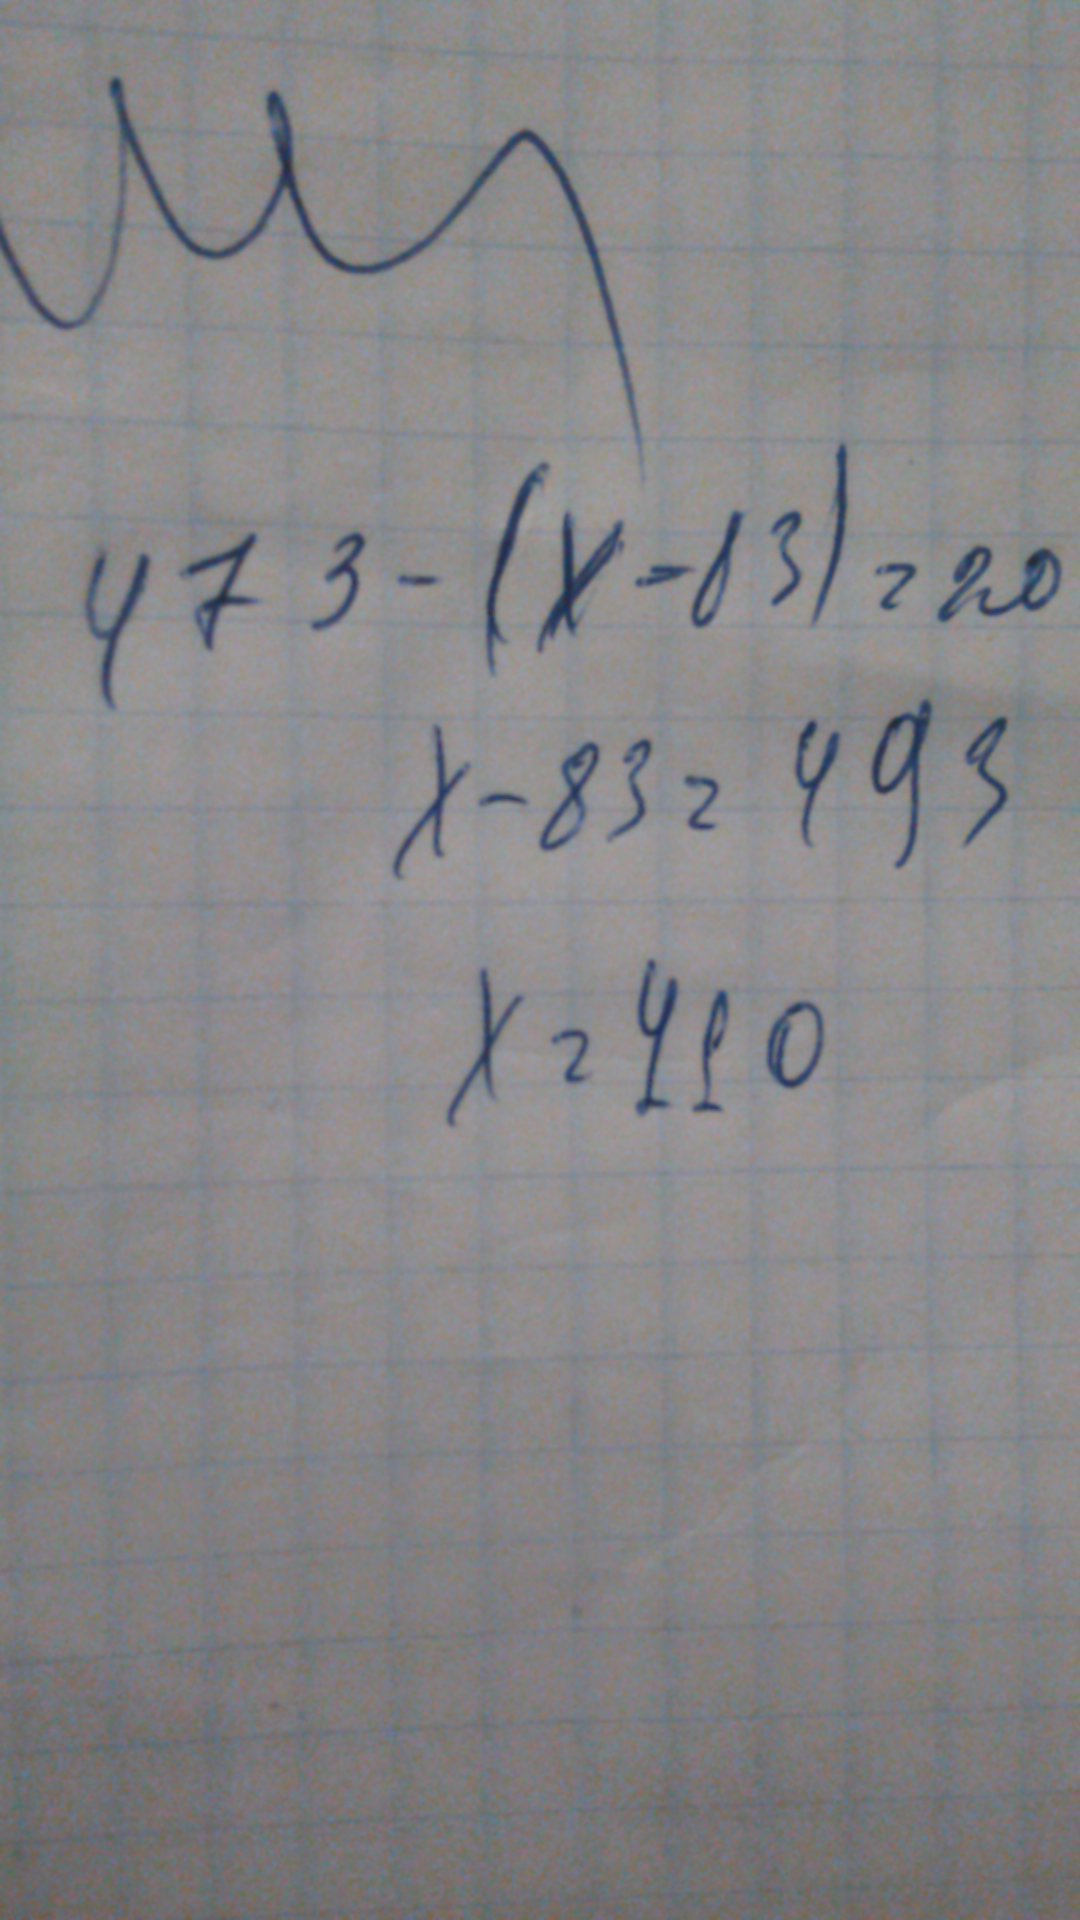 473-(x-83)=20
x-83=493
x=410